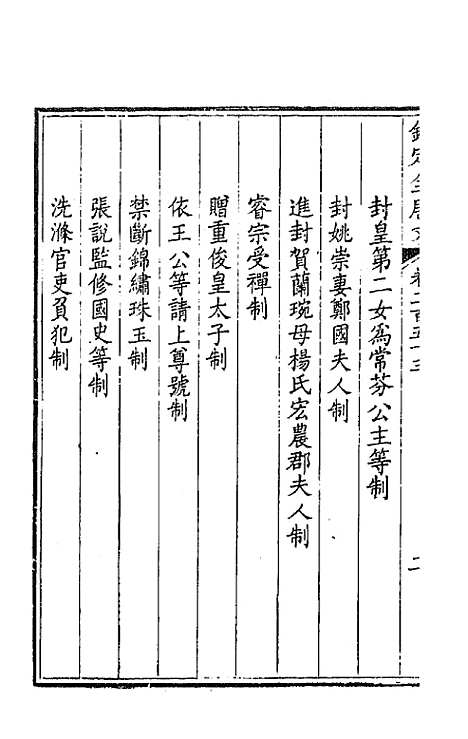 欽定全唐文 卷二百五十三 二
封皇第二女為常芬公主等制
封姚崇妻鄭國夫人制
進封賀蘭琬母楊氏宏農郡夫人制
睿宗受禪制
贈重俊皇太子制
依王公等請上尊號制
禁斷錦繡珠玉制
張說監修國史等制
洗滌官吏負犯制